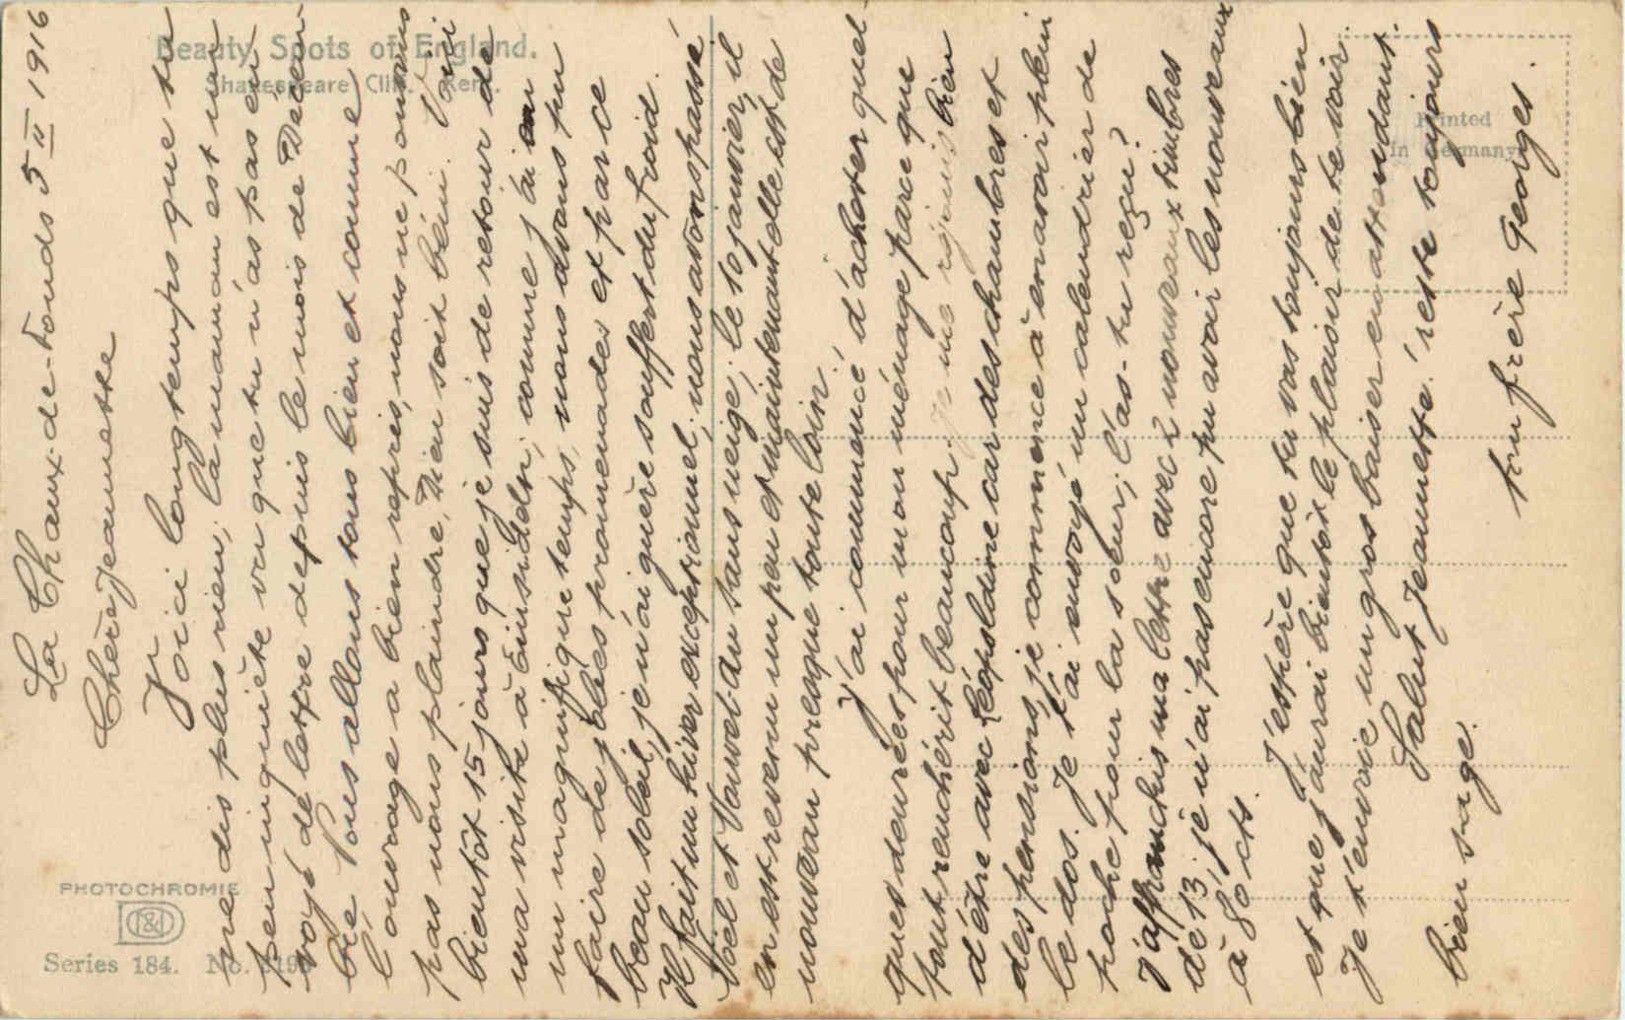 Beauty Spots of England.
Shakespeare Cliff. Kent.
Printed
in Germany
PHOTOCHROMIE
Series 184. No.
La Chaux-de-Fonds 5 II 1916
Chère Jeannette
Voici longtemps que tu
ne dis plus rien; la maman est un
peu inquiète vu que tu n'as pas en-
voyé de lettre depuis le mois de Décem-
bre. Nous allons tous bien et comme
l'ouvrage a bien repris, nous ne pouvons
pas nous plaindre, Dieu soit béni. Voici
bientôt 15 jours que je suis de retour de
ma visite à Einsideln; comme j'ai eu
un magnifique temps, nous avons pu
faire de jolies promenades et par ce
beau soleil, je n'ai guère souffert du froid.
Il fait un hiver exceptionnel, nous avons passé
Noël et Nouvel an sans neige; le 10 janvier, il
en est revenu un peu et maintenant elle est de
nouveau presque toute loin.
J'ai commencé d'acheter quel-
ques denrées pour mon ménage parce que
tout renchérit beaucoup. Je me réjouis bien
d'être avec Léopoldine car des chambres et
des pensions, je commence à en avoir plein
le dos. Je t'ai envoyé un calendrier de
poche pour la soeur; l'as-tu reçu?
J'affranchis ma lettre avec 2 nouveaux timbres
de 13; je n'ai pas encore pu avoir les nouveaux
à 80 cts.
J'espère que tu vas toujours bien
et que j'aurai bientôt le plaisir de te voir.
Je t'envoie un gros baiser en attendant.
Salut Jeannette! reste toujours
bien sage.
ton frère Georges.